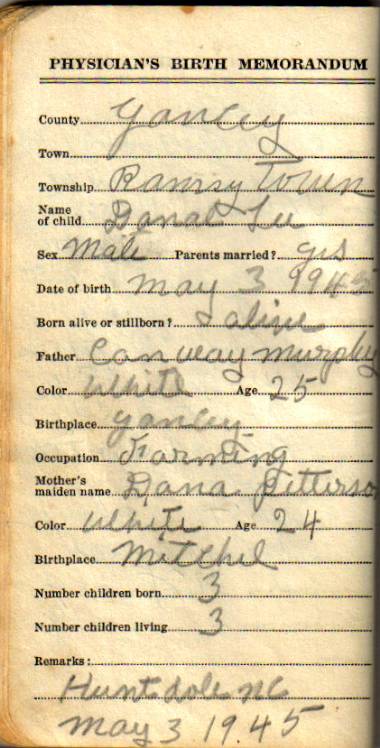 PHYSICIAN'S BIRTH MEMORANDUM
County Yancey
Town
Township Ramsy Town
Name of child Danal Lee
Sex Male Parents married? yes
Date of birth may 3 1945
Born alive or stillborn? alive
Father Conway murphy
Color White Age 25
Birthplace yancey
Occupation Farming
Mother's maiden name Dana
Color White Age 24
Birthplace Mitchel
Number children born 3
Number children living 3
Remarks:
Huntdale NC
May 3 1945